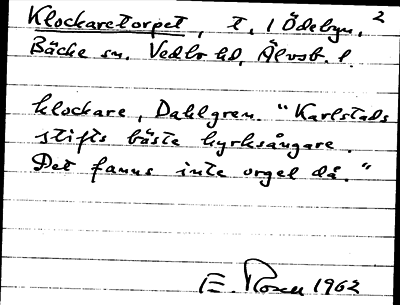 Klockaretorpet, t. 1 Ödebyn. 2
Bäcke sn. Vedbo hd, Älvsb. l.
klockare, Dahlgren. "Karlstads
stifts bäste kyrksångare.
Det fanns inte orgel då."
E. Rosell 1962